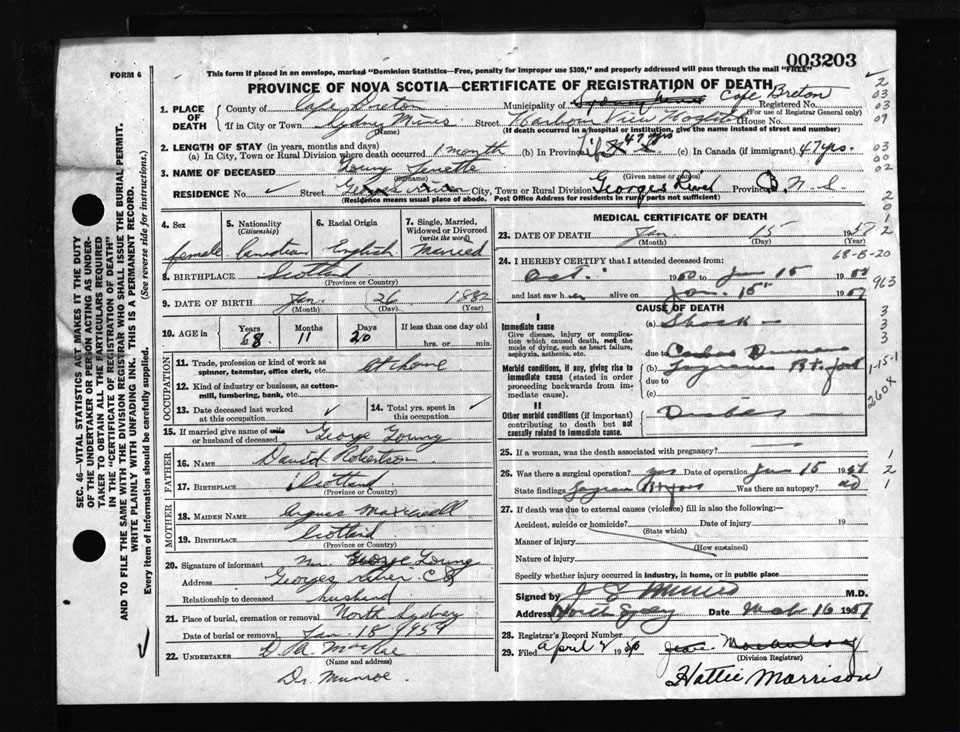 003203
FORM 6
This form if placed in an envelope, marked "Dominion Statistics—Free, penalty for improper use $300," and properly addressed will pass through the mail "FREE"
PROVINCE OF NOVA SCOTIA—CERTIFICATE OF REGISTRATION OF DEATH
1. PLACE OF DEATH
County of Cape Breton Municipality of Sydney Mines Cape Breton Registered No.
(For use of Registrar General only)
If in City or Town Sydney Mines Street Harbour View Hospital House No.
(Name) (If death occurred in a hospital or institution, give the name instead of street and number)
2. LENGTH OF STAY (in years, months and days)
(a) In City, Town or Rural Division where death occurred 1 month (b) In Province 47 yrs (c) In Canada (if immigrant) 47 yrs.
3. NAME OF DECEASED Young
(Name) (Given name or names)
RESIDENCE No. Street City, Town or Rural Division Georges River Province N.S.
(Residence means usual place of abode. Post Office Address for residents in rural parts not sufficient)
4. Sex
female
5. Nationality (Citizenship)
Canadian
6. Racial Origin
English
7. Single, Married, Widowed or Divorced (write the word)
Married
8. BIRTHPLACE Scotland
(Province or Country)
9. DATE OF BIRTH Jan. 26 1882
(Month) (Day) (Year)
10. AGE in Years 68 Months 11 Days 20 If less than one day old hrs. or min.
OCCUPATION
11. Trade, profession or kind of work as spinner, teamster, office clerk, etc. at home
12. Kind of industry or business, as cotton-mill, lumbering, bank, etc.
13. Date deceased last worked at this occupation
14. Total yrs. spent in this occupation
15. If married give name of wife or husband of deceased George Young
FATHER
16. NAME David Robertson
17. BIRTHPLACE Scotland
(Province or Country)
MOTHER
18. MAIDEN NAME Agnes Maxwell
19. BIRTHPLACE Scotland
(Province or Country)
20. Signature of informant Mr. George Young
Address Georges River C.B.
Relationship to deceased husband
21. Place of burial, cremation or removal North Sydney
Date of burial or removal Jan. 18
22. UNDERTAKER D.A. MacRae
(Name and address)
Dr. Munroe.
MEDICAL CERTIFICATE OF DEATH
23. DATE OF DEATH Jan 15 19
(Month) (Day) (Year)
24. I HEREBY CERTIFY that I attended deceased from:
Oct. 1950 to Jan 15 19
and last saw her alive on Jan. 15 19
CAUSE OF DEATH
I
Immediate cause
Give disease, injury or complication which caused death, not the mode of dying, such as heart failure, asphyxia, asthenia, etc.
(a) Shock
due to
Morbid conditions, if any, giving rise to immediate cause (stated in order proceeding backwards from immediate cause).
(b) Gangrene Rt. foot
due to
(c)
II
Other morbid conditions (if important) contributing to death but not causally related to immediate cause.
Diabetes
25. If a woman, was the death associated with pregnancy?
26. Was there a surgical operation? yes Date of operation Jan 15 19
State findings Was there an autopsy? no
27. If death was due to external causes (violence) fill in also the following:—
Accident, suicide or homicide? Date of injury 19
(State which)
Manner of injury
(How sustained)
Nature of injury
Specify whether injury occurred in industry, in home, or in public place
Signed by M.D.
Address North Sydney Date 16 19
28. Registrar's Record Number
29. Filed April 2 19
(Division Registrar)
Hattie Morrison
68-B-20
963
1-15-1
260X
SEC. 46—VITAL STATISTICS ACT MAKES IT THE DUTY
OF THE UNDERTAKER OR PERSON ACTING AS UNDER-
TAKER TO OBTAIN ALL THE PARTICULARS REQUIRED
IN THE "CERTIFICATE OF REGISTRATION OF DEATH"
AND TO FILE THE SAME WITH THE DIVISION REGISTRAR WHO SHALL ISSUE THE BURIAL PERMIT.
WRITE PLAINLY WITH UNFADING INK. THIS IS A PERMANENT RECORD.
Every item of information should be carefully supplied. (See reverse side for instructions.)